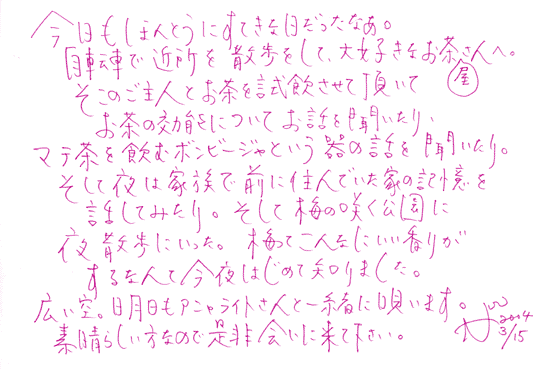 今日もほんとうにすてきな日だったなあ。
自転車で近所を散歩をして、大好きなお茶屋さんへ。
そこのご主人とお茶を試飲させて頂いて
お茶の効能についてお話を聞いたり、
マテ茶を飲むボンビージャという器の話を聞いたり。
そして夜は家族で前に住んでいた家の記憶を
話してみたり。そして梅の咲く公園に
夜散歩にいった。梅ってこんなにいい香りが
するなんて今夜はじめて知りました。
広い空。明日もアニャライトさんと一緒に唄います。
素晴らしい方なので是非会いに来て下さい。
2004
3/15